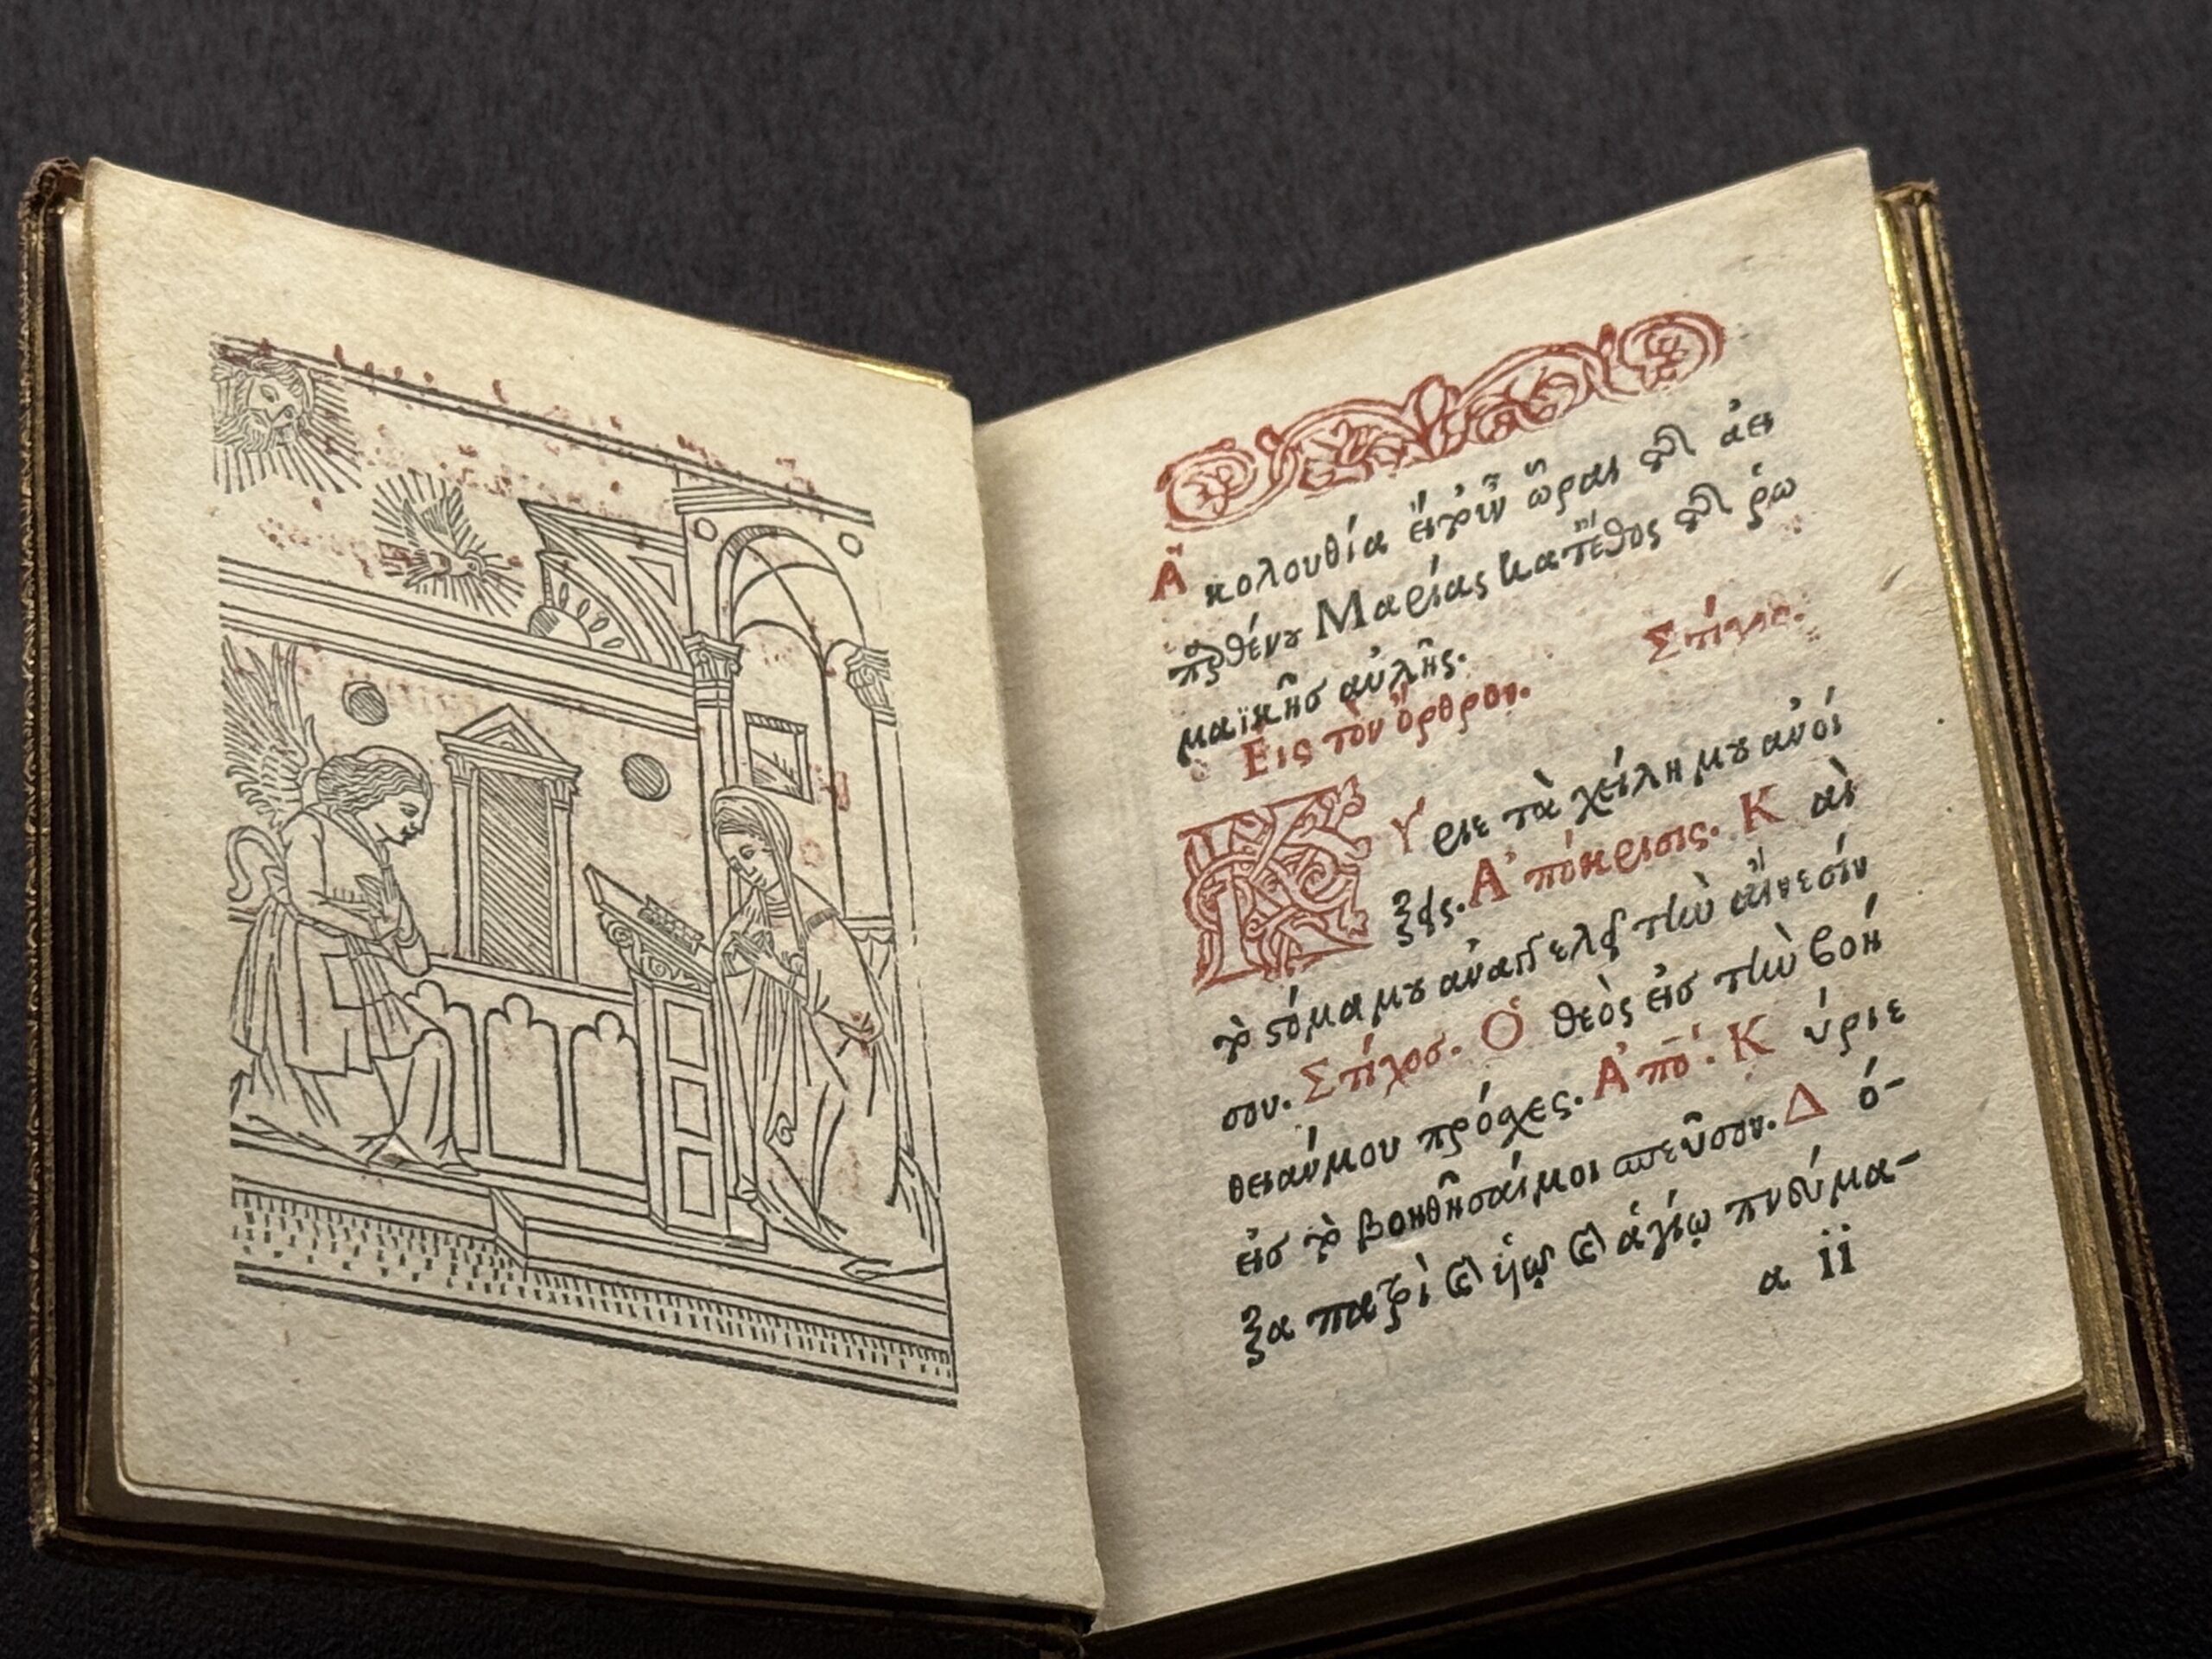 Ἀκολουθία εἴτουν ὥραι τῆς ἀει
πρθένου Μαρίας κατ' ἔθος τῆς ῥω
μαϊκῆσ αὐλῆς. Στίχος.
Εις τὸν ὄρθρον.
ΚΥριε τὰ χείλη μου ἀνοί
ξεις. Ἀπόκρισις. Καὶ
τὸ στόμα μου ἀναγγελεῖ τὴν αἴνεσίν
σου. Στίχοσ. Ὁ θεὸς εἰσ τὴν βοή
θειαύμου πρόσχες. Ἀπο. Κύριε
εἰσ τὸ βοηθῆσαίμοι σπεῦσον. Δό-
ξα πατρὶ καὶ ὑιῷ καὶ ἁγίῳ πνεύμα-
α ii